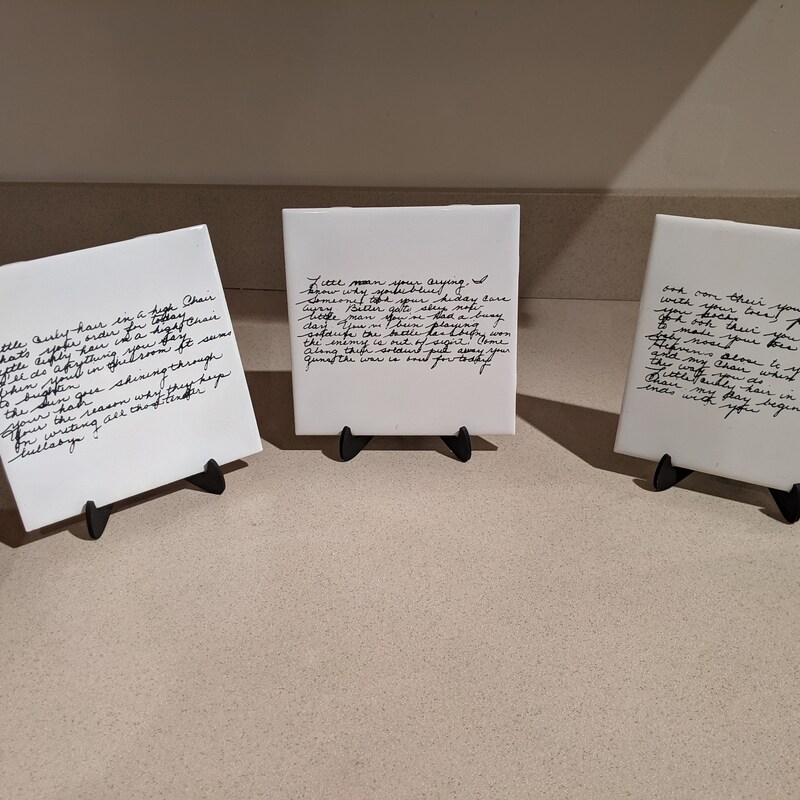 ttle curly hair in a high Chair
hats your order for today
ttle curly hair in a high Chair
I'll do anything you say
when your in this room it seems
to brighten
the sun goes shining through
your hair
Your the reason why they keep
on writing all those
Lullabys
Little man your crying, I
know why your blue
Someone took your kiday care
away. Better go to sleep now
little man you've had a busy
day. You've been playing
soldiers the battle has been won
the enemy is out of sight. Come
along their soldier put away your
guns the war is over for today
ooh ooh their you
with your toes,
you
go ooh their you
to make your
nose
Heavens close to y
and my chair when
the way you do
Little curly hair in
Chair my Day begin
ends with you